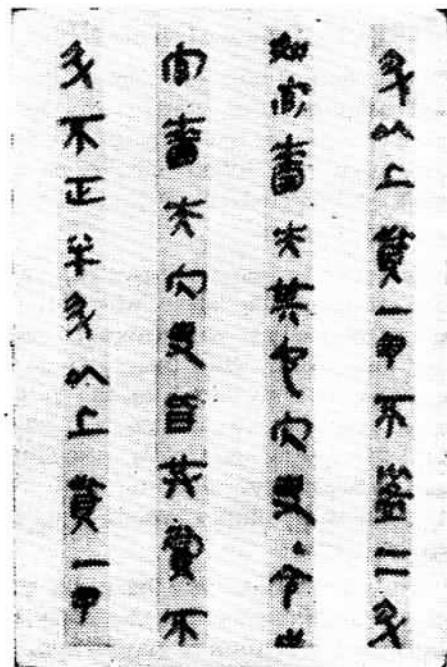 升以上貲一甲不盈二升
如官嗇夫其它冗吏令
官嗇夫冗吏皆共賞不
斗不正半升以上貲一甲